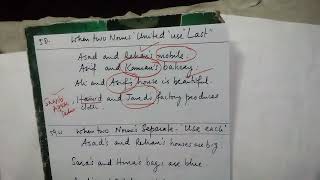 When two Noun's United 'use' Last"
Asad and Rehan's mobile.
Asif and Kamran's bakery.
Ali and Asif's house is beautiful.
Hamid and Javed's factory produces
cloth.
When two Noun's Separate. Use each
Asad's and Rehan's houses are big
Sara's and Hina's bags are blue.